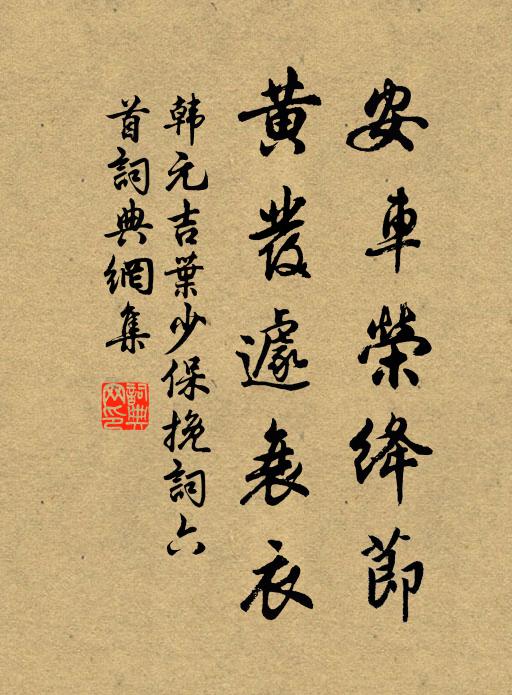 安車榮絳節
黃發遽袞衣
韩元吉葉少保挽詞六
首詞典網集
詞典网印